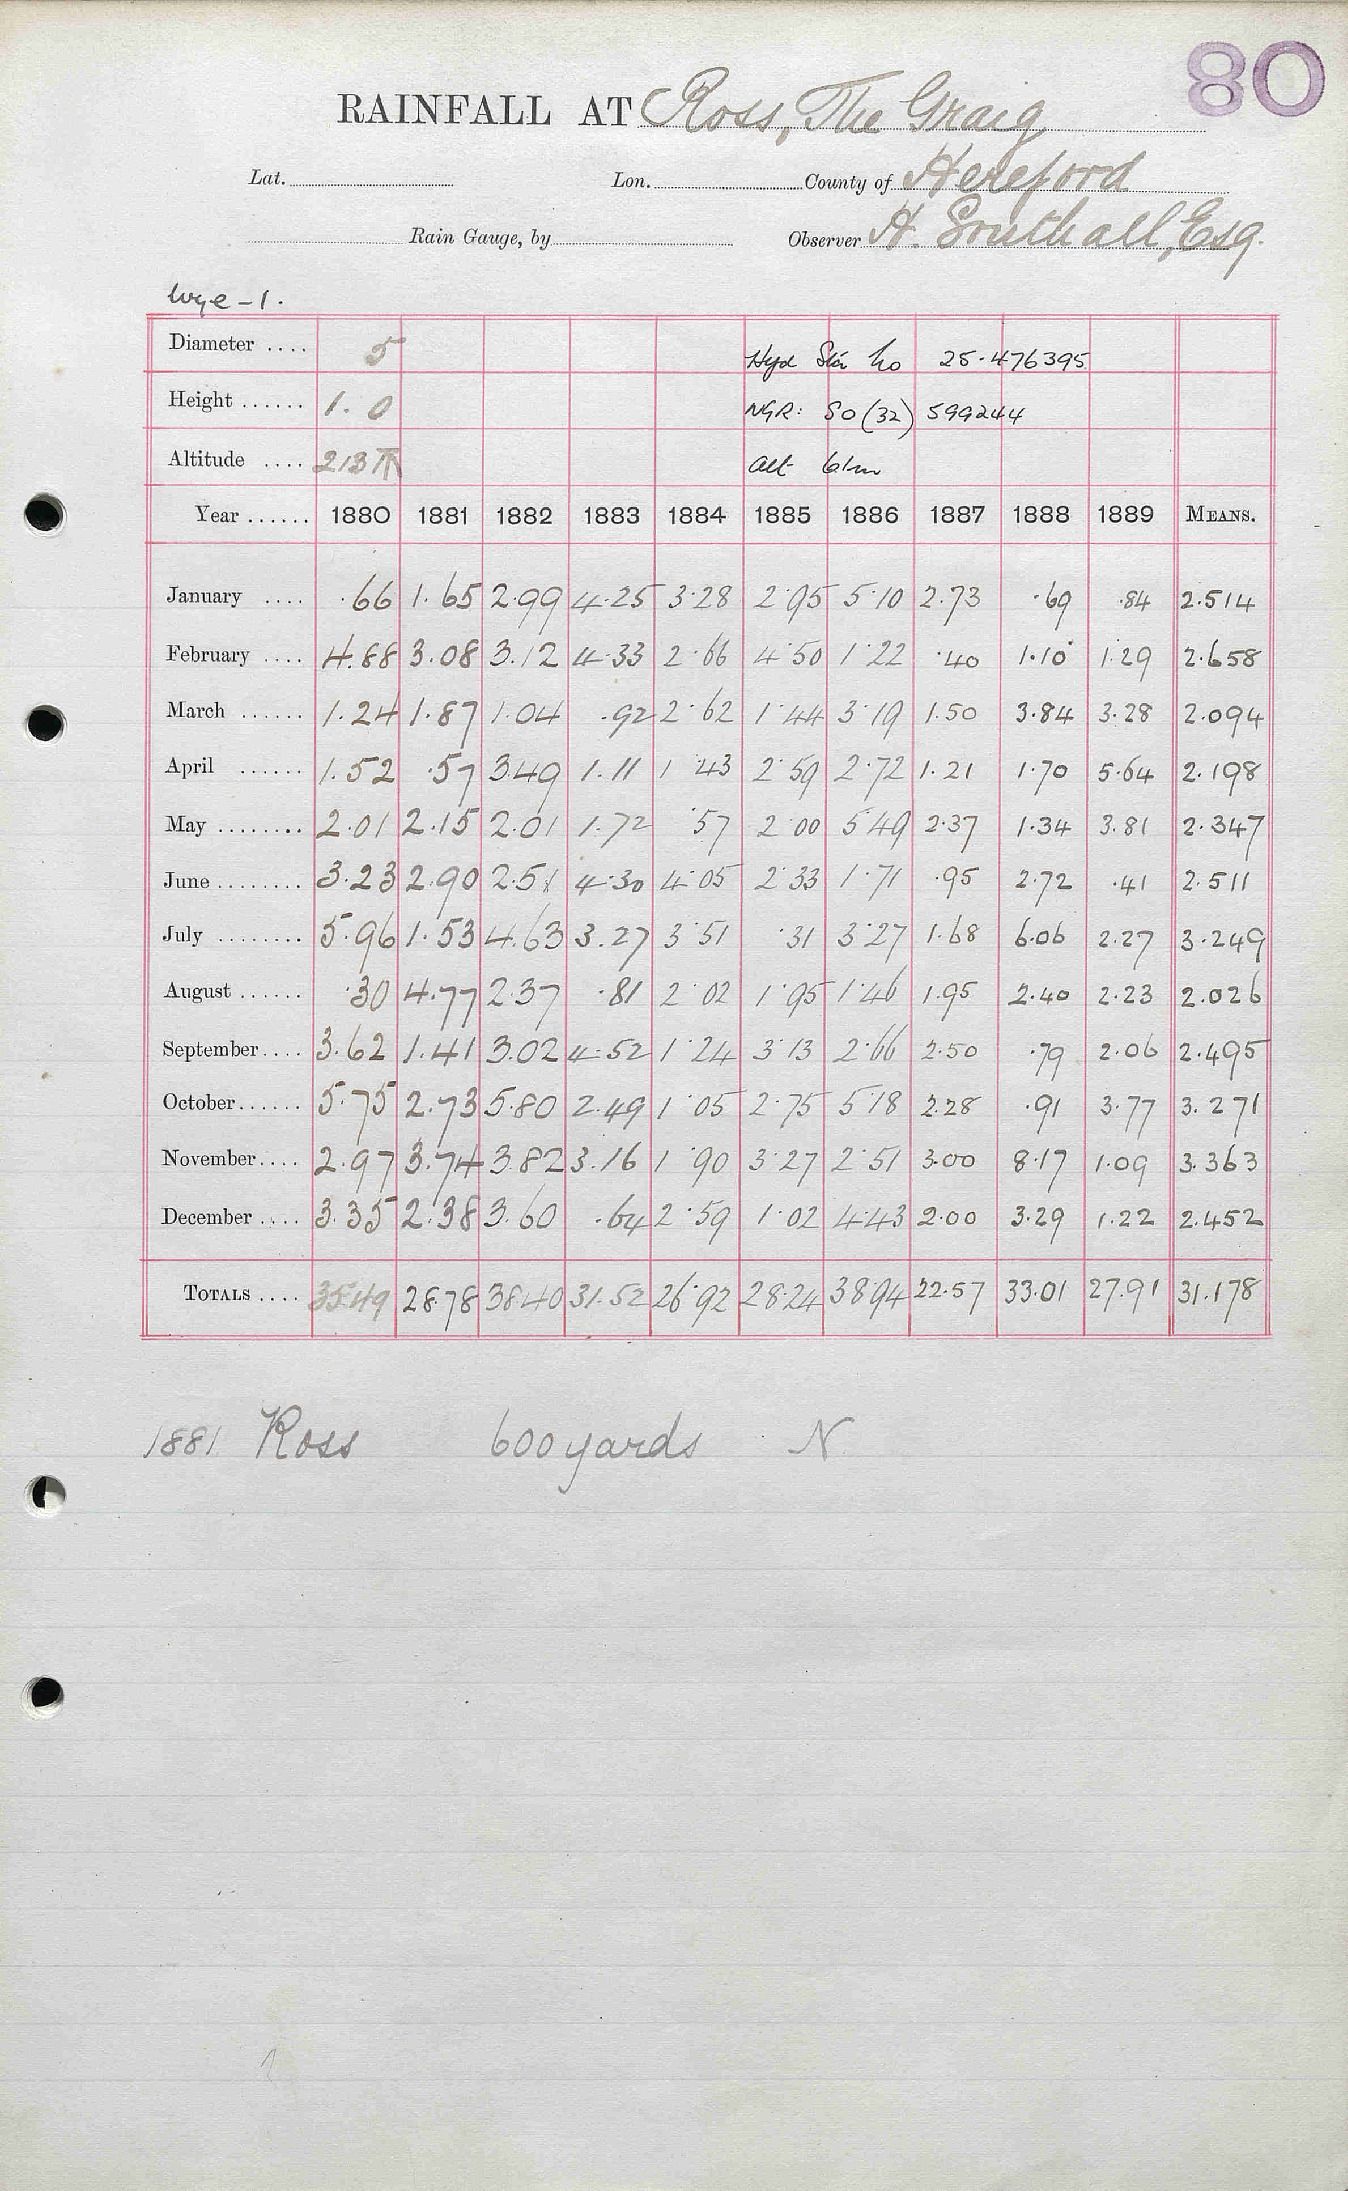 80
RAINFALL AT Ross, The Graig
Lat. Lon. County of Hereford
Rain Gauge, by Observer H. Southall, Esq.
Wye - 1.
Diameter .... 5 Hyd Sta No 25.476395
Height ...... 1.0 NGR: SO (32) 599244
Altitude .... 213 Alt 61m
Year ...... 1880 1881 1882 1883 1884 1885 1886 1887 1888 1889 MEANS.
January .... .66 1.65 2.99 4.25 3.28 2.95 5.10 2.73 .69 .84 2.514
February .... 4.88 3.08 3.12 4.33 2.66 4.50 1.22 .40 1.10 1.29 2.658
March ...... 1.24 1.87 1.04 .92 2.62 1.44 3.19 1.50 3.84 3.28 2.094
April ...... 1.52 .57 3.49 1.11 1.43 2.59 2.72 1.21 1.70 5.64 2.198
May ........ 2.01 2.15 2.01 1.72 .57 2.00 5.49 2.37 1.34 3.81 2.347
June ........ 3.23 2.90 2.51 4.30 4.05 2.33 1.71 .95 2.72 .41 2.511
July ........ 5.96 1.53 4.63 3.27 3.51 .31 3.27 1.68 6.06 2.27 3.249
August ...... .30 4.77 2.37 .81 2.02 1.95 1.46 1.95 2.40 2.23 2.026
September .... 3.62 1.41 3.02 4.52 1.24 3.13 2.66 2.50 .79 2.06 2.495
October ...... 5.75 2.73 5.80 2.49 1.05 2.75 5.18 2.28 .91 3.77 3.271
November .... 2.97 3.74 3.82 3.16 1.90 3.27 2.51 3.00 8.17 1.09 3.363
December .... 3.35 2.38 3.60 .64 2.59 1.02 4.43 2.00 3.29 1.22 2.452
TOTALS .... 35.49 28.78 38.40 31.52 26.92 28.24 38.94 22.57 33.01 27.91 31.178
1881 Ross 600 yards N